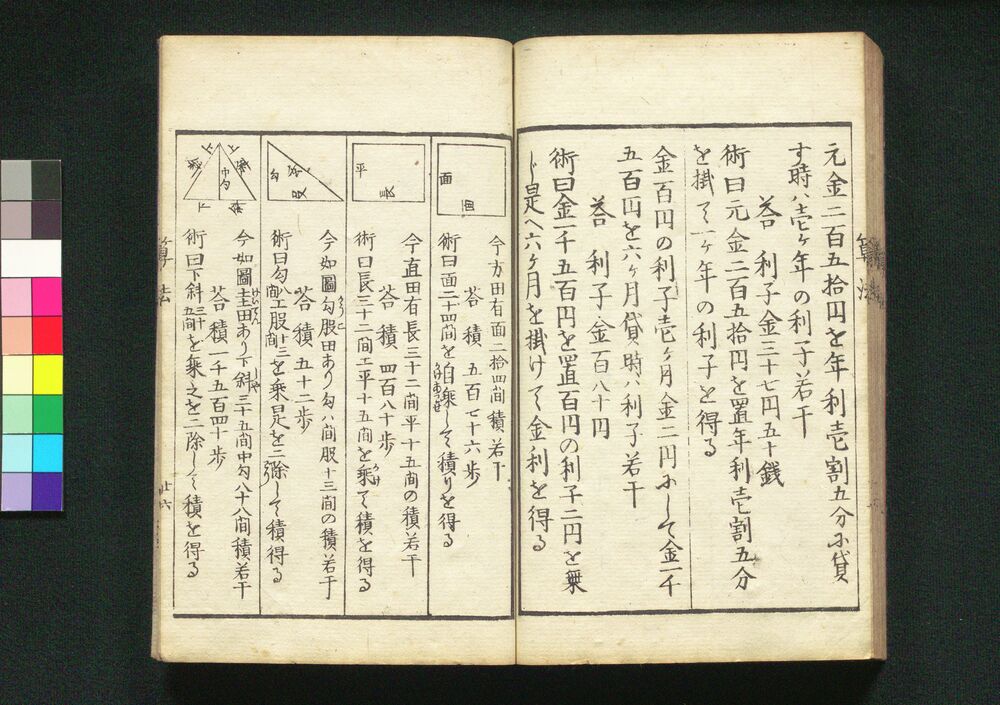 元金二百五拾円を年利壱割五分ニ貸
す時ハ壱ケ年の利子若干
荅 利子金三十七円五十銭
術曰元金二百五拾円を置年利壱割五分
を掛て一ケ年の利子と得る
金百円の利子壱ケ月金二円にして金一千
五百円を六ケ月貸時ハ利子若干
荅 利子金百八十円
術曰金一千五百円を置一百円の利子二円を乗
じ是へ六ケ月を掛けて金利を得る
算法
面
面
今方田有面二拾四間積若干
荅 積 五百七十六歩
術曰面二十四間を自乗して積りを得る
平
長
今直田有長三十二間平十五間の積若干
荅 積 四百八十歩
術曰長三十二間エ平十五間を乗て積を得る
勾
玄
股
今如圖勾股田あり勾八間股十三間の積若干
荅 積 五十二歩
術曰勾八間エ股十三間を乗是を二除して積得る
上
上
斜
斜
中勾
下
斜
今如圖圭田あり下斜三十五間中勾八十八間積若干
荅 積一千五百四十歩
術曰下斜三十五間を乗之を二除して積を得る
算法
廿六